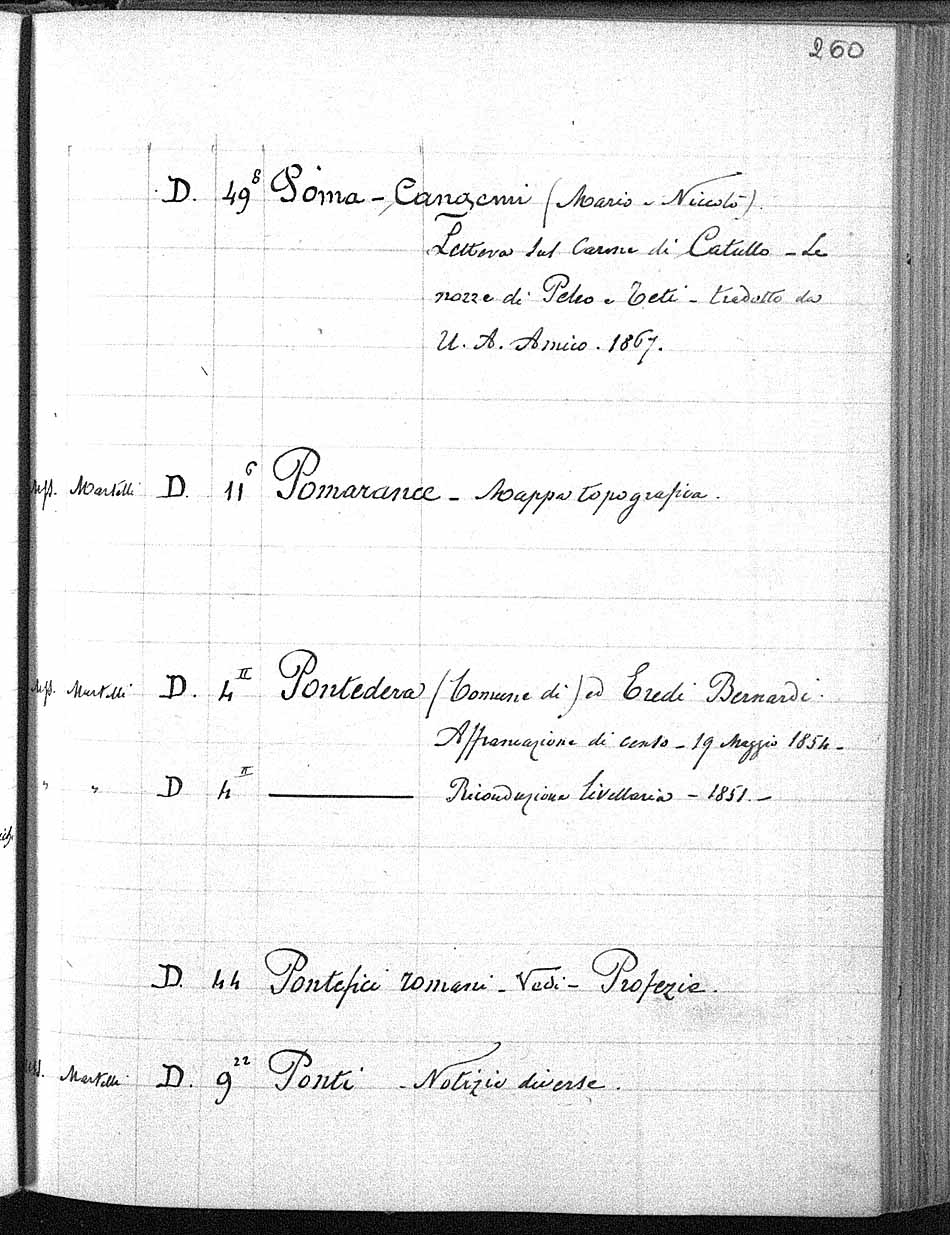 260
D. 49⁸ Poma - Cangemi (Mario e Niccolò).
Lettera sul Carme di Catullo - Le
nozze di Peleo e Teti - tradotto da
U. A. Amico. 1867.
Mss. Martelli D. 11⁶ Pomarance - Mappa topografica.
Mss. Martelli D. 4ᴵᴵ Pontedera (Comune di) ed Eredi Bernardi.
Affrancazione di censo - 19 Maggio 1854 -
" " D 4ᴵᴵ ——— Riconduzione livellaria - 1851. -
D. 44 Pontefici romani - Vedi - Profezie.
Mss. Martelli D. 9²² Ponti - Notizie diverse.